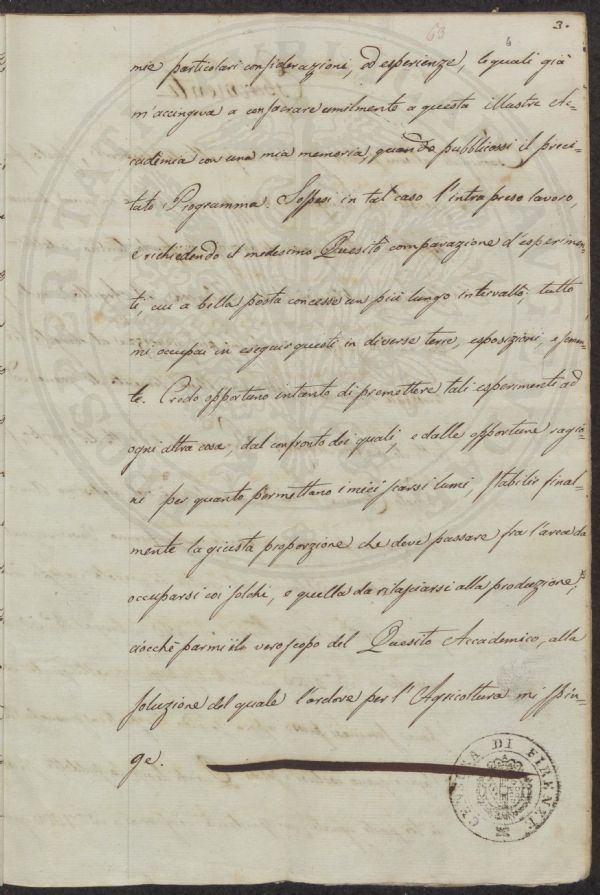 63
3.
mie particolari considerazioni, ed esperienze, le quali già
m'accingeva a consacrare umilmente a questa illustre Ac-
cademia con una mia memoria, quando pubblicossi il preci-
tato Programma. Sospesi in tal caso l'intrapreso lavoro,
e richiedendo il medesimo Quesito comparazione d'esperimen-
ti, cui a bella posta concesse un più lungo intervallo tutto
mi occupai in eseguir questi in diverse terre, esposizioni, e semen-
te. Credo opportuno intanto di premettere tali esperimenti ad
ogni altra cosa, dal confronto dei quali, e dalle opportune ragio-
ni per quanto permettano i miei scarsi lumi, stabilir final-
mente la giusta proporzione che deve passare fra l'area da
occuparsi coi solchi, e quella da rilasciarsi alla produzione,
ciocchè parmi il vero scopo del Quesito Accademico, alla
soluzione del quale l'ardore per l'Agricoltura mi spin-
ge.
DI FIRENZE